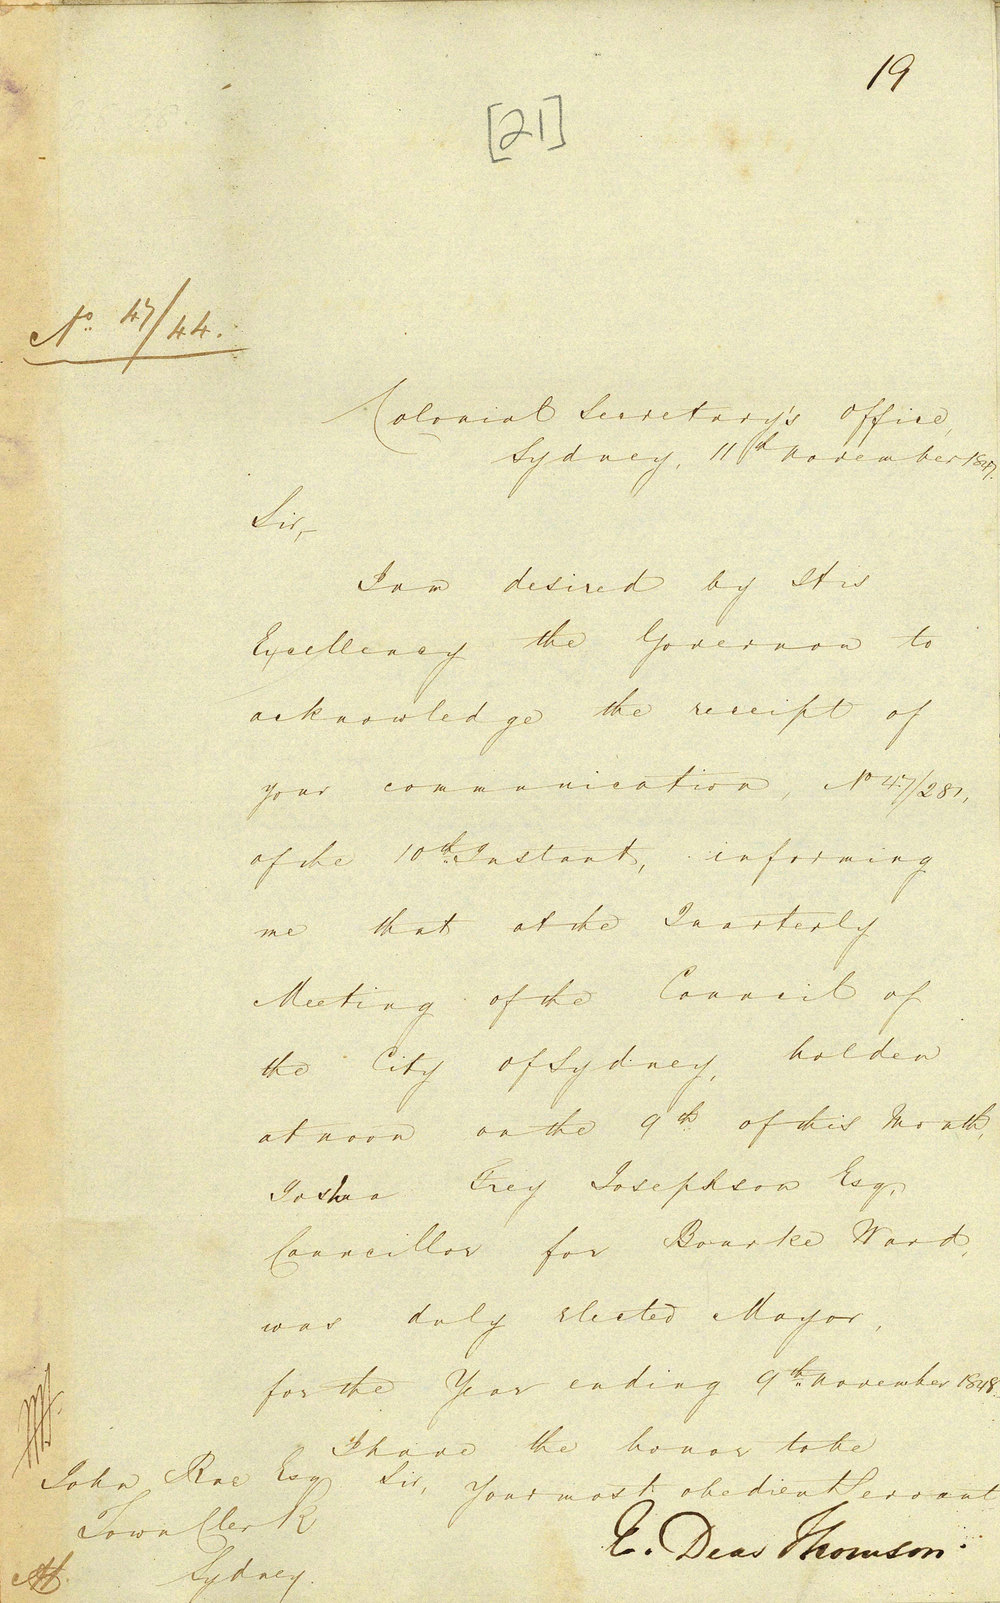 19
[21]
No. 47/44.
Colonial Secretary's Office,
Sydney, 11th November 1847.
Sir,
I am desired by His
Excellency the Governor to
acknowledge the receipt of
your communication, No 47/281,
of the 10th Instant, informing
me that at the Quarterly
Meeting of the Council of
the City of Sydney, holden
at noon on the 9th of this Month,
Joshua Frey Josephson Esq,
Councillor for Bourke Ward,
was duly elected Mayor,
for the Year ending 9th November 1848.
I have the honor to be
Sir, Your most obedient Servant
E. Deas Thomson.
John Rae Esq
Town Clerk
Sydney.